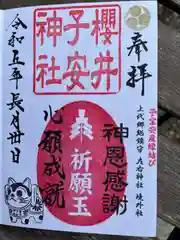 奉拝
櫻井
子安
神社
令和五年長月廿日
心願成就
祈願玉
神恩感謝
子宝安産縁結び
上代郷総鎮守 左右神社 境外社